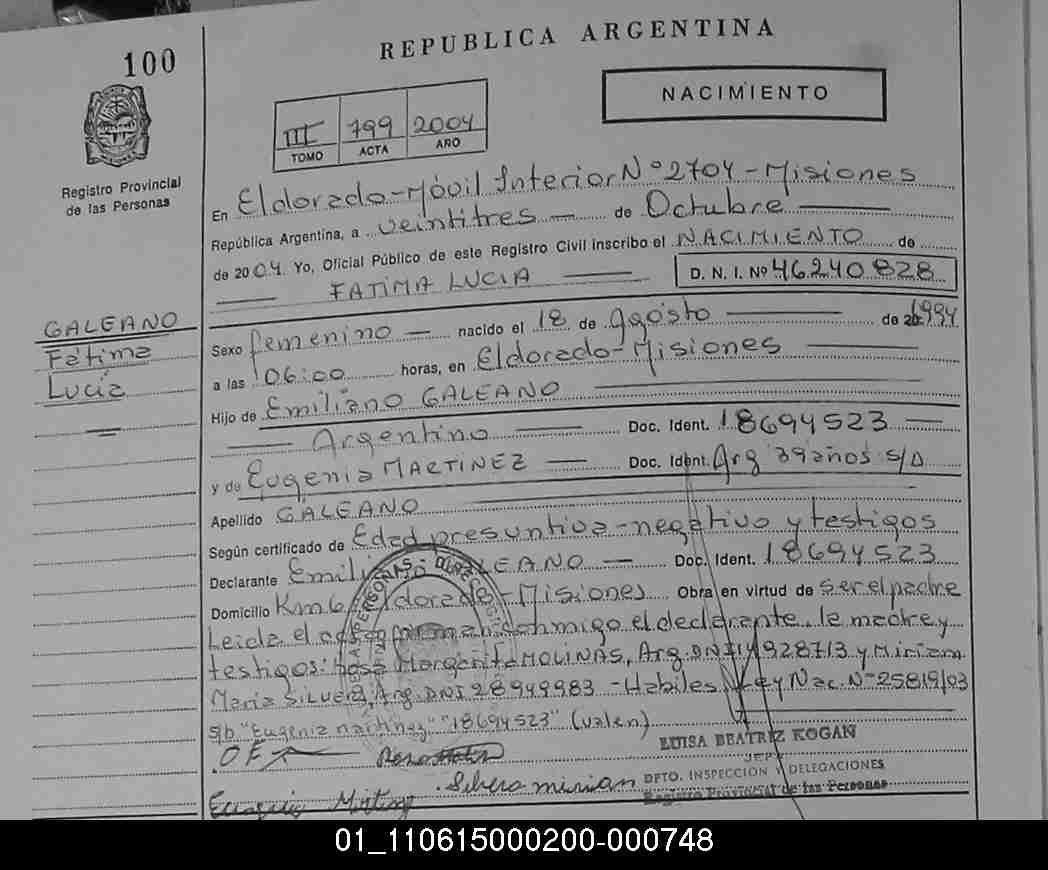 REPUBLICA ARGENTINA
100
NACIMIENTO
III 799 2004
TOMO ACTA AÑO
Registro Provincial
de las Personas
En Eldorado - Móvil Interior N° 2704 - Misiones
República Argentina, a veintitres — de Octubre
de 2004. Yo, Oficial Público de este Registro Civil inscribo el NACIMIENTO de
FATIMA LUCIA D. N. I. Nº 46240828
GALEANO
Fátima
Lucía
Sexo femenino — nacido el 18 de agosto de 1994
a las 06:00 horas, en Eldorado - Misiones
Hijo de Emiliano GALEANO
Argentino Doc. Ident. 18694523
y de Eugenia MARTINEZ — Doc. Ident. Arg 39 años s/D
Apellido GALEANO
Según certificado de Edad presuntiva - negativo y testigos
Declarante Emili GALEANO — Doc. Ident. 18694523
Domicilio Km 6 Eldorado - Misiones Obra en virtud de ser el padre
Leida el acta firman conmigo el declarante, la madre y
testigos: Margarita MOLINAS, Arg. DNI 14928713 y Miriam
María SILVERA, Arg. DNI 28949983 - Habiles, Ley Nac. N° 25819/03
s/b "Eugenia martinez" "18694523" (valen)
LUISA BEATRIZ KOGAN
JEFA
DPTO. INSPECCION Y DELEGACIONES
Registro Provincial de las Personas
Silvera mirian
01_110615000200-000748